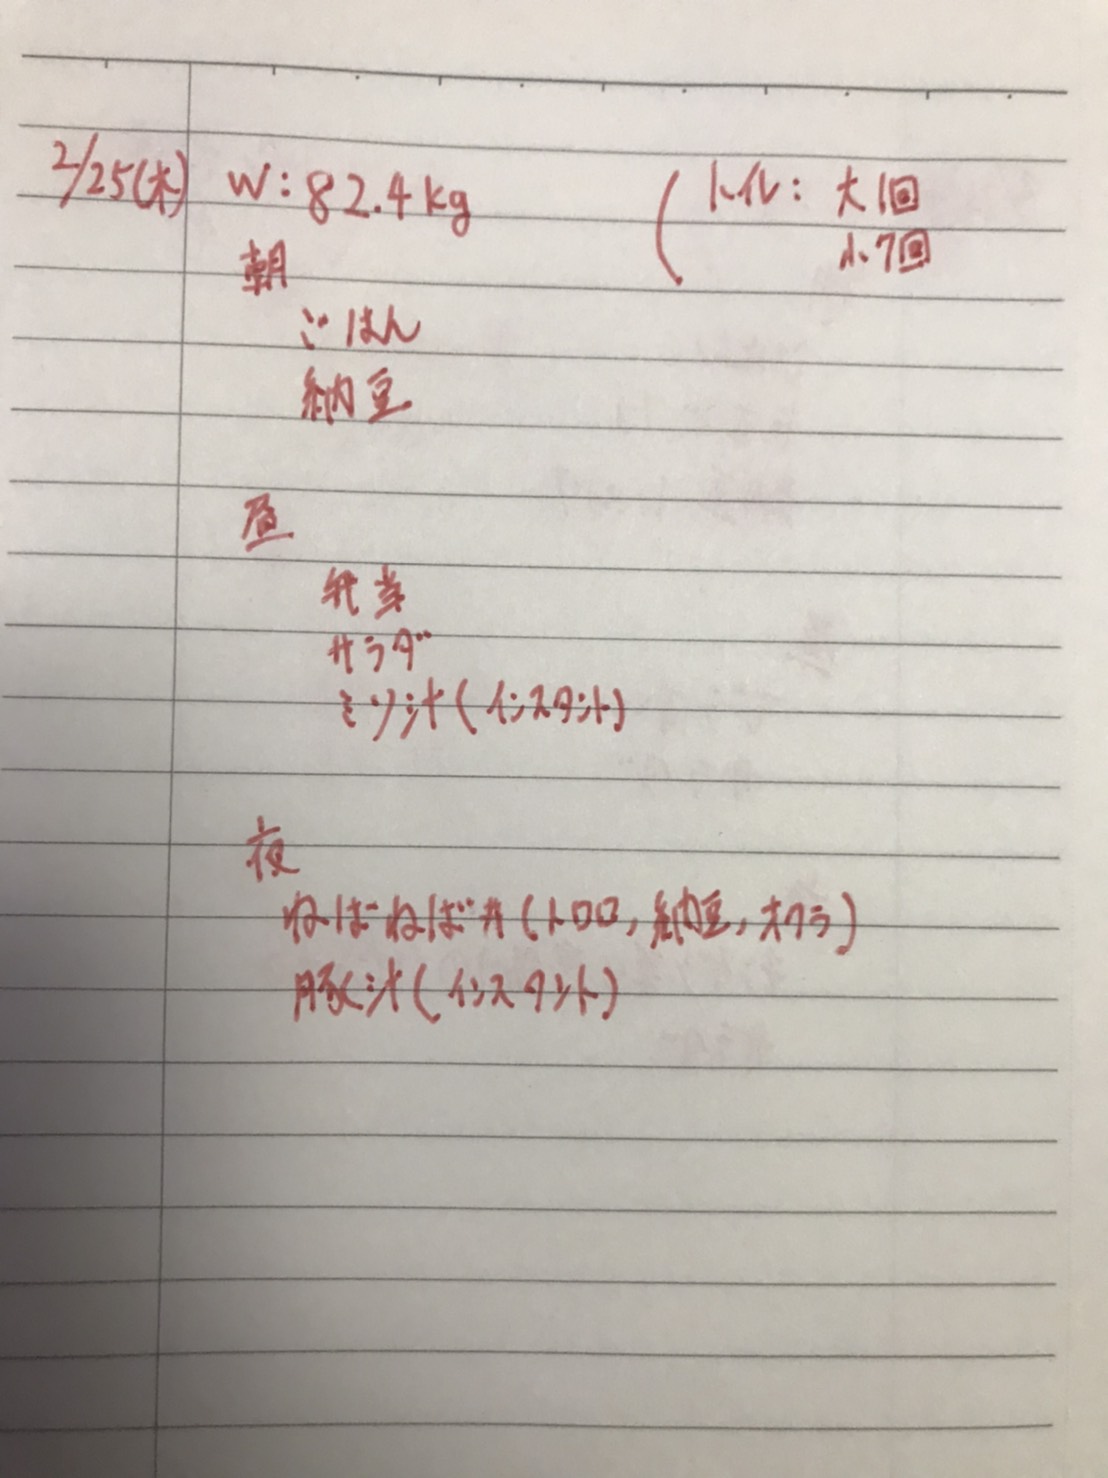 2/25(木) W:82.4kg (トイレ:大1回
小7回
朝
ごはん
納豆
昼
弁当
サラダ
ミソ汁(インスタント)
夜
ねばねば丼(トロロ,納豆,オクラ)
豚汁(インスタント)